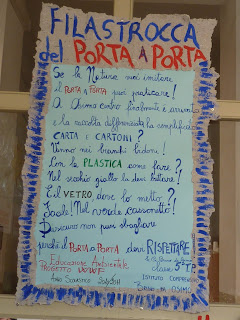 FILASTROCCA
del PORTA A PORTA
Se la Natura vuoi imitare
il PORTA A PORTA puoi praticare!
A Osimo centro finalmente è arrivato
e la raccolta differenziata ha semplificato
CARTA E CARTONI?
Vanno nei bianchi bidoni!
Con la PLASTICA come fare?
Nel secchio giallo la devi buttare!
E il VETRO dove lo metto?
Facile! Nel verde cassonetto!
Nessuno non può sbagliare
perché il PORTA A PORTA devi RISPETTARE
Educazione Ambientale
PROGETTO
classe 5ª
Anno Scolastico
ISTITUTO COMPRENSIVO
OSIMO